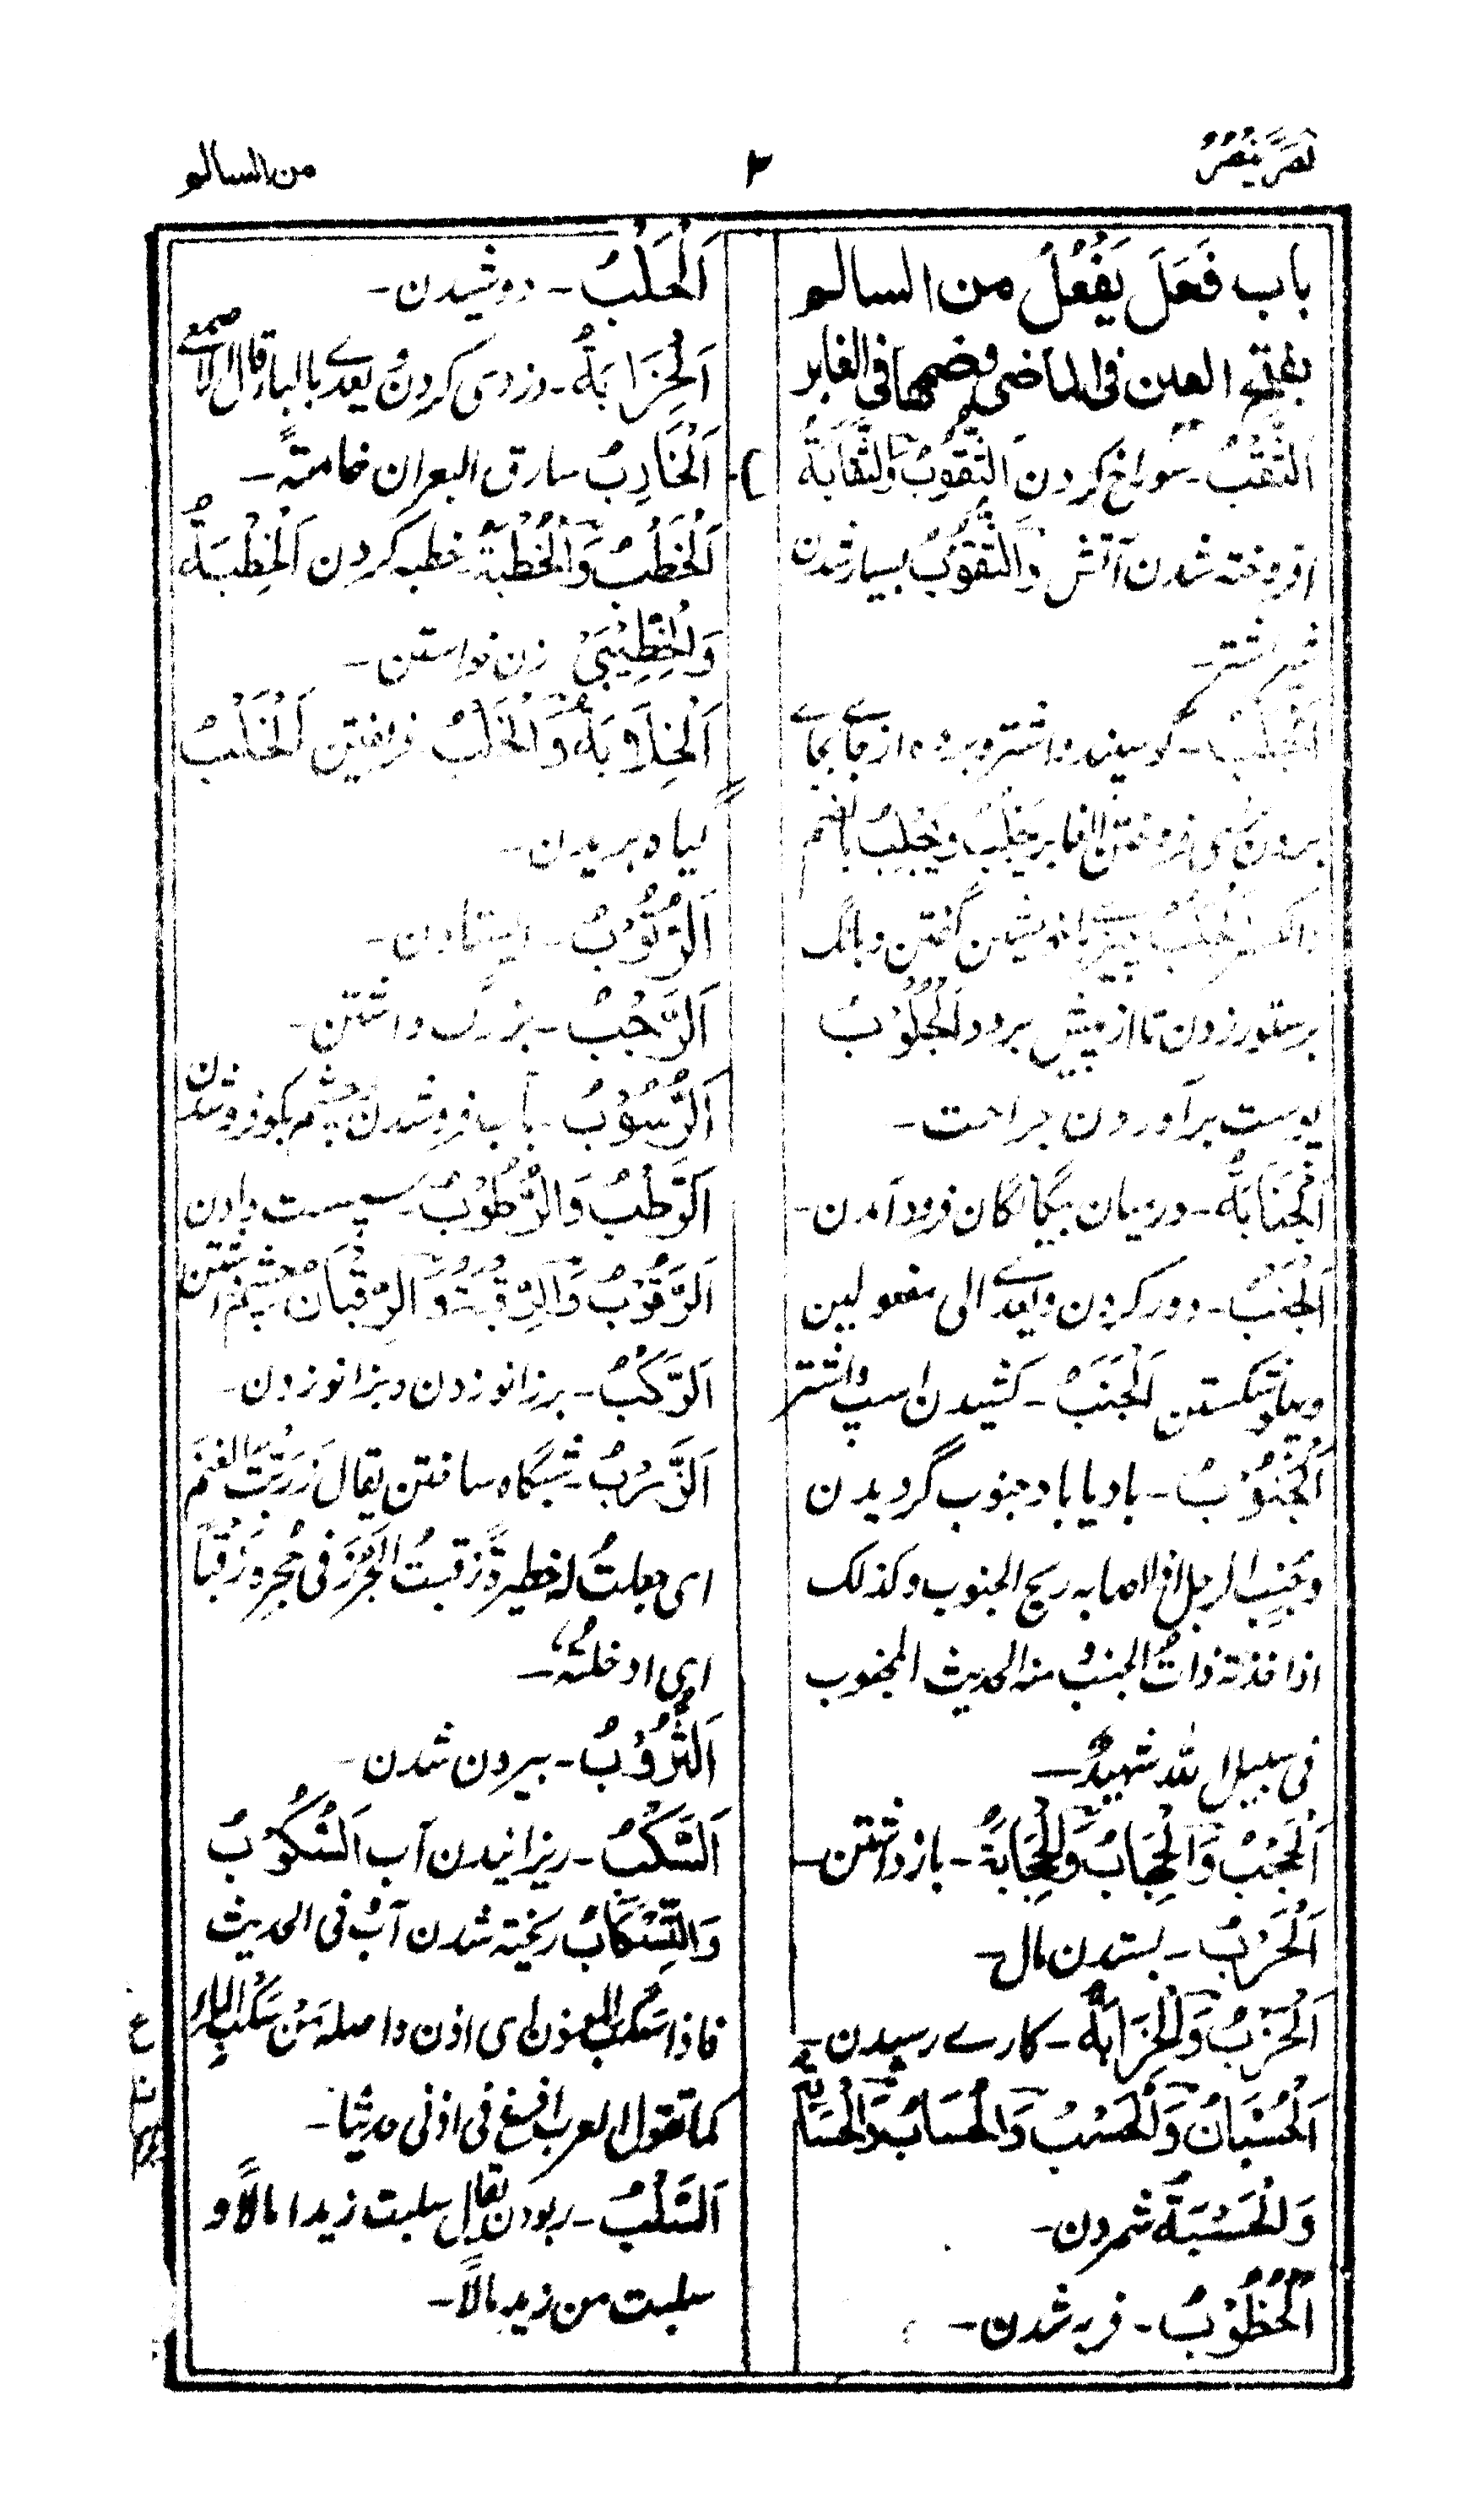 نَصَرَ يَنْصُرُ
۲
من السالم
باب فَعَلَ يَفْعُلُ من السالم
بفتح العين فى الماضى وضمها فى الغابر
اَلثَّقْبُ ـ سوراخ كردن اَلثُّقُوْبُ وَالثَّقَابَةُ
افروخته شدن آتش وَالثُّقُوْبُ بسيار شدن
شير اشتر ـ
اَلْجَلْبُ ـ گوسپند و اشتر و برده از جاے بجاے
بردن فروختن الغابر يَجْلُبُ وَيَجْلِبُ بالضم
والكسر اَلْجَلْبُ باخويشتن گفتن و بانگ
برستور زدن تا از پيش برود اَلْجُلُوْبُ
پوست برآوردن جراحت ـ
اَلْجَنَابَةُ ـ درميان بيگانگان فرود آمدن ـ
اَلْجَنْبُ ـ دور كردن ويعدے الى مفعولين
وپهلو شكستن اَلْجَنَبُ ـ كشيدن اسپ و اشتر
اَلْجُنُوْبُ ـ باد يا باد جنوب گرديدن
وجُنِبَ الرجل اذا اصابه ريح الجنوب وكذلك
اذا اخذته ذاتُ الجنبُ منه الحديث المجنوب
فى سبيل الله شهيدٌ ـ
اَلْحَجْبُ وَالْحِجَابُ وَالْحِجَابَةُ ـ باز داشتن ـ
اَلْحَرْبُ ـ بستدن مال ـ
اَلْحَزْبُ وَالْحَزَابَةُ ـ كارے رسيدن ـ
اَلْحُسْبَانُ وَالْحَسْبُ وَالْحِسَابُ وَالْحِسَابَةُ
وَالْحِسْبَةُ شمردن ـ
اَلْحُظُوْبُ ـ فربه شدن ـ
اَلْحَلْبُ ـ دوشيدن ـ
اَلْخِرَابَةُ ـ دزدى كردن ويعدے بالباء قال الاصمعى
اَلْخَارِبُ سارق البعران خاصةً ـ
اَلْخَطْبُ وَالْخُطْبَةُ خطبه كردن اَلْخِطْبَةُ
وَالْخِطِّيْبَىْ زن خواستن ـ
اَلْخِلَابَةُ وَالْخَلْبُ فريفتن اَلْخَلْبُ
گياه بريدن ـ
اَلرُّتُوْبُ ـ ايستادن ـ
اَلرَّجْبُ ـ بزرگ داشتن ـ
اَلرُّسُوْبُ ـ بآب فرو شدن و چشم بگو فرو شدن
اَلرَّطْبُ وَالرُّطُوْبُ ـ سپست دادن
اَلرُّقُوْبُ وَالرِّقْبَةُ وَالرِّقْبَانُ چشم داشتن
اَلرَّكْبُ ـ برزانو زدن و بزانو زدن ـ
اَلزَّرْبُ ـ شبگاه ساختن يقال زَرَبْتُ الغنم
اى جعلتُ له حظيرةً زقبتُ الجُرَذَ فى جُحرِه زَقْبًا
اى ادخلتُه ـ
اَلسُّرُوْبُ ـ بيرون شدن ـ
اَلسَّكْبُ ـ ريزانيدن آب اَلسُّكُوْبُ
وَالتَّسْكَابُ ريخته شدن آب فى الحديث
فاذا سَكَبَ المؤذن اى اذن واصله مِنْ سَكْبِ الماء
كما تقول العرب افرغ فى اذنى حديثا ـ
اَلسَّلْبُ ـ ربودن يقال سلبت زيدا مالاً و
سلبت من زيد مالاً ـ